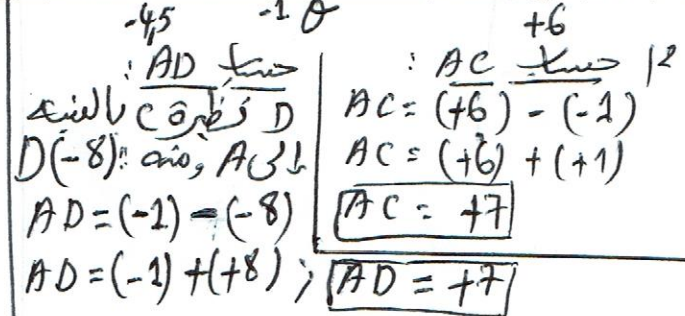 -4,5 -1 0 +6
2) حساب AC :
AC = (+6) - (-1)
AC = (+6) + (+1)
AC = +7
حساب AD :
D نظيرة C بالنسبة
إلى A ومنه: D(-8)
AD = (-1) - (-8)
AD = (-1) + (+8) ; AD = +7